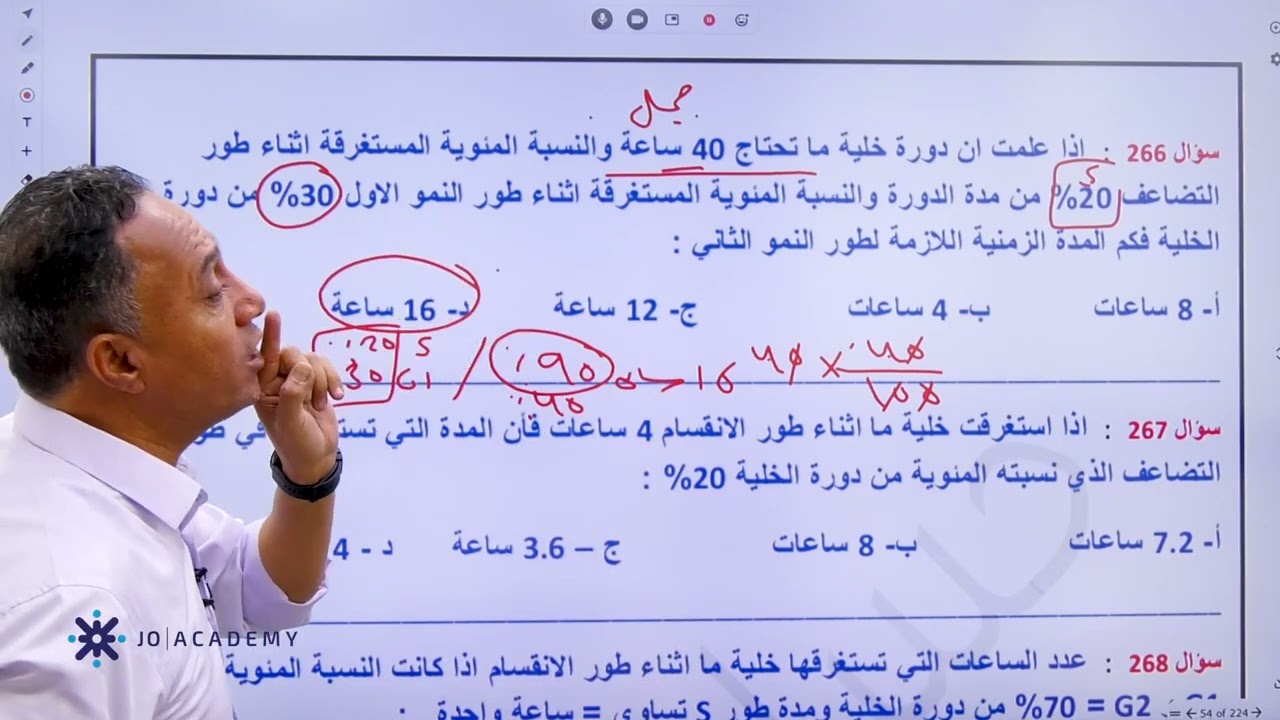 جميل
سؤال 266 : إذا علمت ان دورة خلية ما تحتاج 40 ساعة والنسبة المئوية المستغرقة اثناء طور
S
التضاعف 20% من مدة الدورة والنسبة المئوية المستغرقة اثناء طور النمو الاول 30% من دورة
الخلية فكم المدة الزمنية اللازمة لطور النمو الثاني :
أ- 8 ساعات ب- 4 ساعات ج- 12 ساعة د- 16 ساعة
سؤال 267 : اذا استغرقت خلية ما اثناء طور الانقسام 4 ساعات فأن المدة التي في
التضاعف الذي نسبته المئوية من دورة الخلية 20% :
أ- 7.2 ساعات ب- 8 ساعات ج – 3.6 ساعة د - 4
سؤال 268 : عدد الساعات التي تستغرقها خلية ما اثناء طور الانقسام اذا كانت النسبة المئوية
G2 = 70% من دورة الخلية ومدة طور S تساوي = ساعة واحدة :
54 of 224
JO ACADEMY